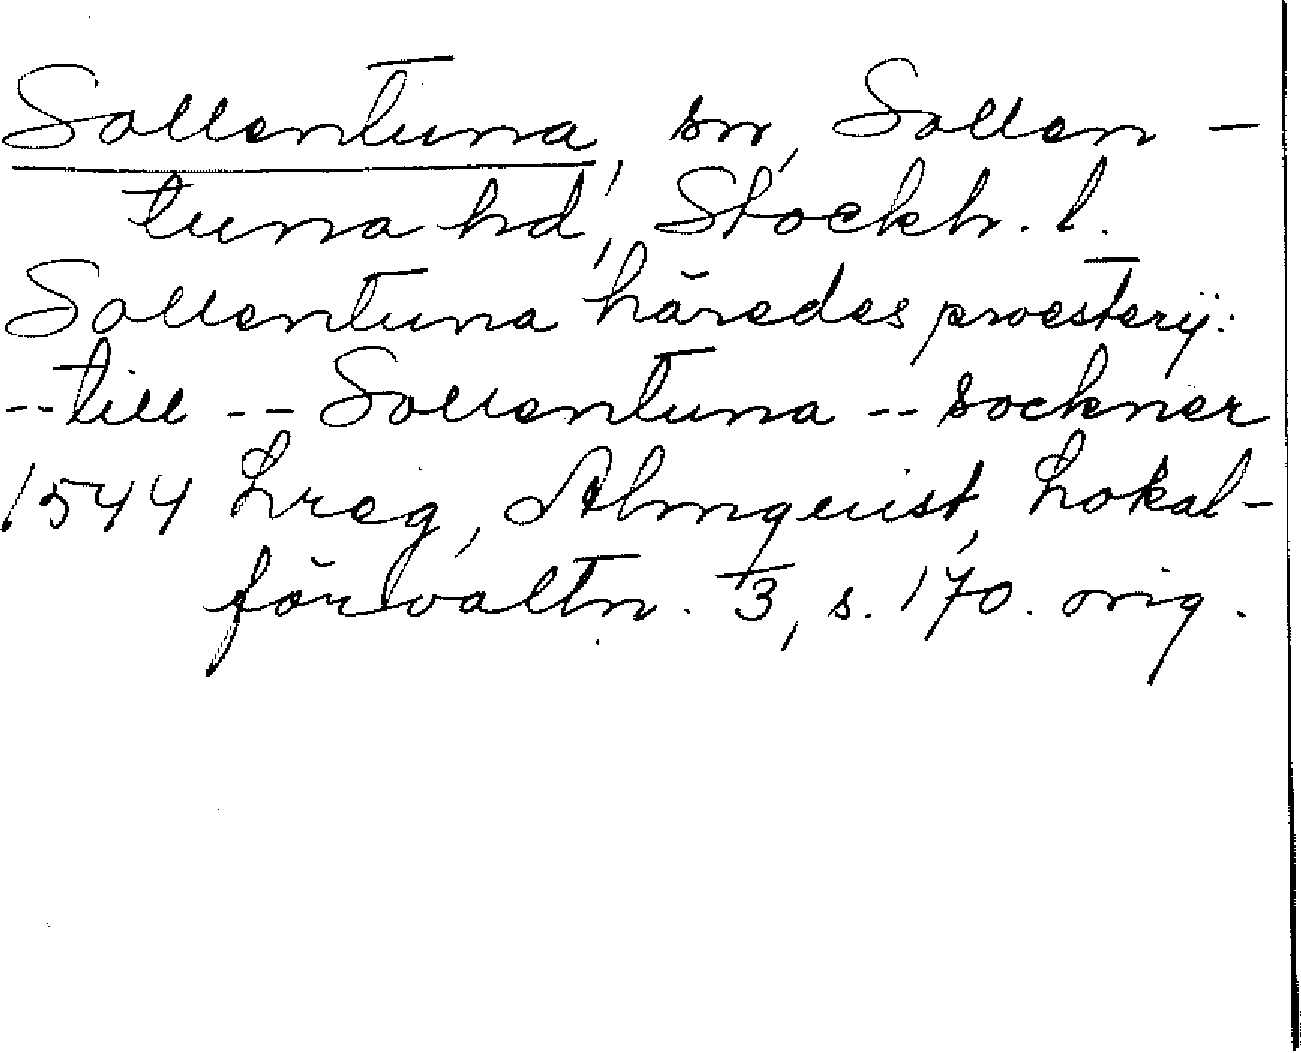 Sollentuna, sn, Sollen-
tuna hd, Stockh. l.
Sollentuna häredes proesterij:
-- till -- Sollentuna -- sockner
1544 Lreg, Almquist, Lokal-
förvaltn. 3, s. 170. orig.